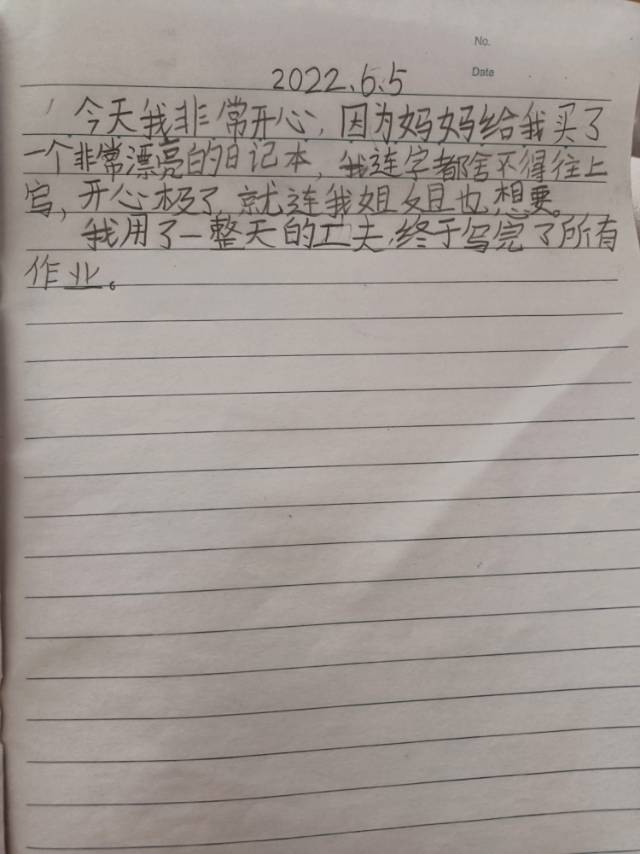 No.
Date
2022.6.5
今天我非常开心,因为妈妈给我买了
一个非常漂亮的日记本,我连字都舍不得往上
写,开心极了,就连我姐姐也想要。
我用了一整天的工夫,终于写完了所有
作业。